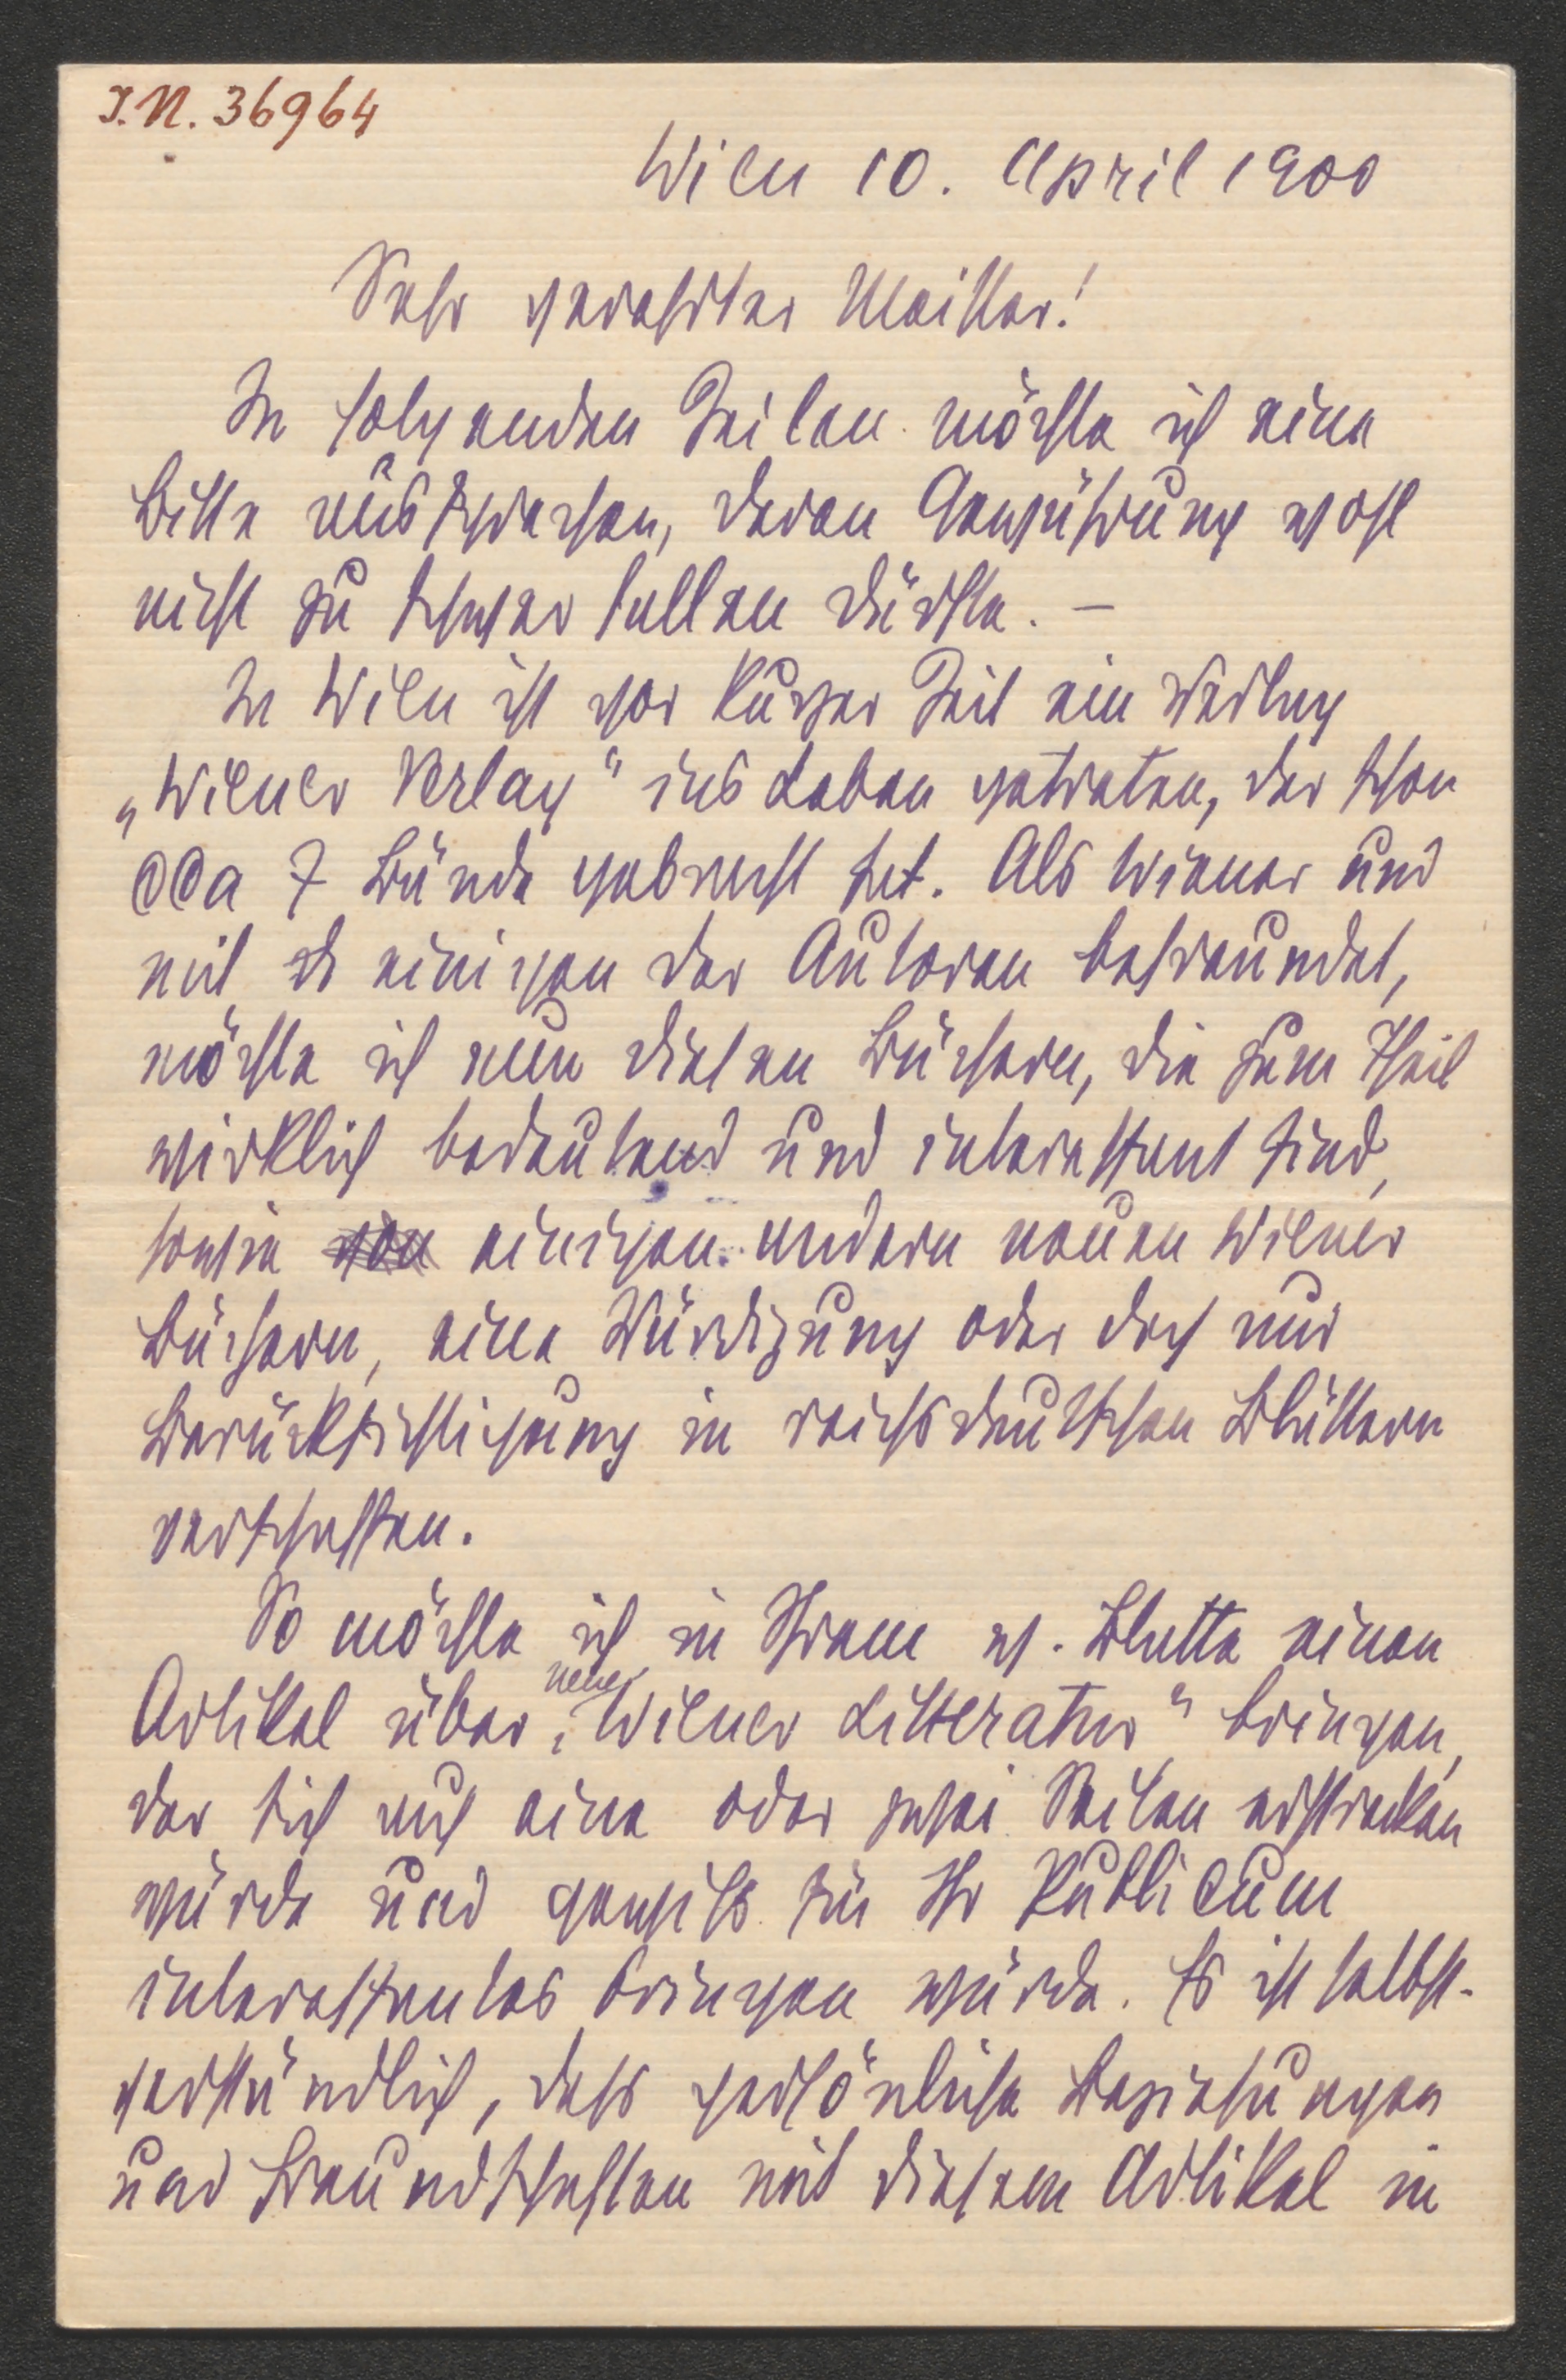 I.N. 36964
Wien 10. April 1900
Sehr verehrter Meister!
In folgenden Zeilen möchte ich eine
Bitte aussprechen, deren Gewährung wohl
nicht zu schwer fallen dürfte. –
In Wien ist vor kurzer Zeit ein Verlag
„Wiener Verlag" ins Leben getreten, der schon
cca 7 Bände gebracht hat. Als Wiener und
mit einigen der Autoren befreundet,
möchte ich nun diesen Büchern, die zum Theil
wirklich bedeutend und interessant sind,
sowie von einigen andern neuen Wiener
Büchern, eine Würdigung oder doch nur
Berücksichtigung in reichsdeutschen Blättern
verschaffen.
So möchte ich in Ihrem w. Blatte einen
Artikel über „neue Wiener Litteratur" bringen,
der sich auf eine oder zwei Seiten erstrecken
würde und gewiss für Ihr Publicum
interessantes bringen würde. Es ist selbst-
verständlich, dass persönliche Beziehungen
und Freundschaften mit diesem Artikel in